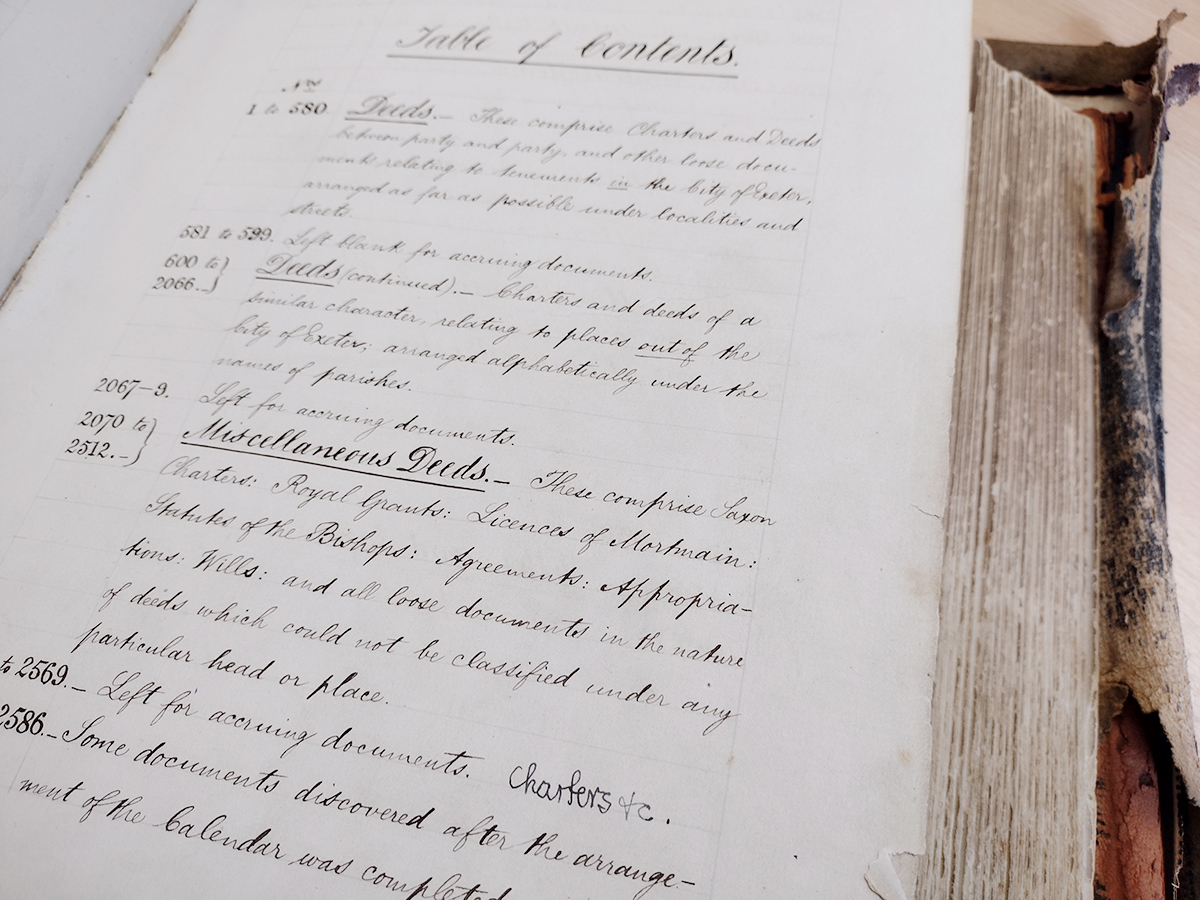 Table of Contents.
Nos
1 to 580. Deeds.— These comprise Charters and Deeds
between party and party, and other loose docu-
ments relating to tenements in the City of Exeter,
arranged as far as possible under localities and
streets.
581 to 599. Left blank for accruing documents.
600 to } Deeds (continued).— Charters and deeds of a
2066.— similar character, relating to places out of the
City of Exeter; arranged alphabetically under the
names of parishes.
2067–9. Left for accruing documents.
2070 to } Miscellaneous Deeds.— These comprise Saxon
2512.— Charters: Royal Grants: Licences of Mortmain:
Statutes of the Bishops: Agreements: Appropria-
tions: Wills: and all loose documents in the nature
of deeds which could not be classified under any
particular head or place.
to 2569.— Left for accruing documents. Charters &c.
2586.— Some documents discovered after the arrange-
ment of the Calendar was completed